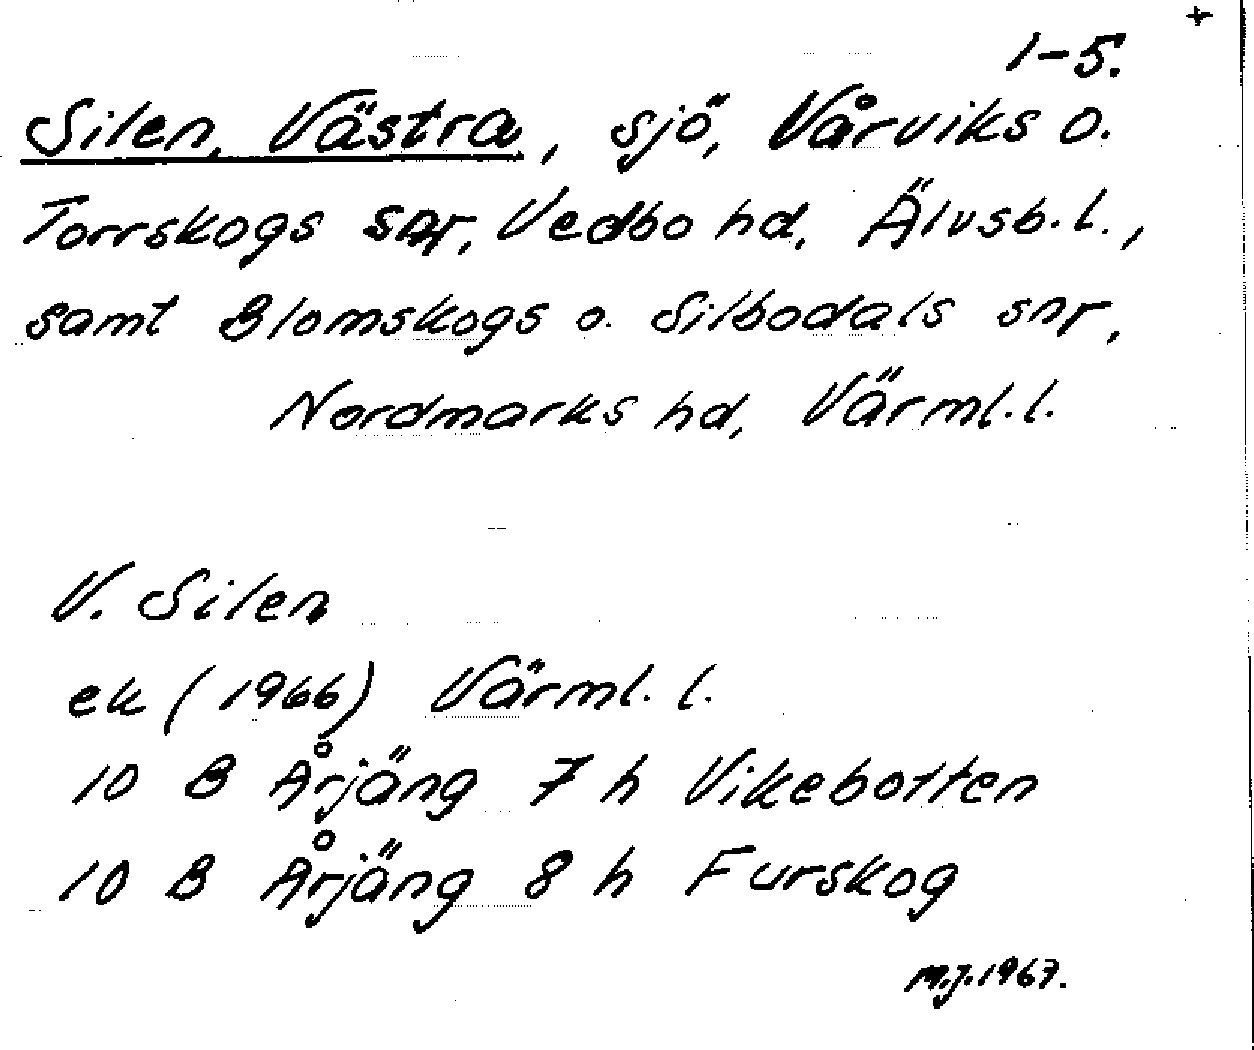 +
1-5.
Silen, Västra, sjö, Vårviks o.
Torrskogs snr, Vedbo hd, Älvsb. l.,
samt Blomskogs o. Silbodals snr,
Nordmarks hd, Värml. l.
V. Silen
ek (1966) Värml. l.
10 B Årjäng 7 h Vikebotten
10 B Årjäng 8 h Furskog
M.J. 1967.